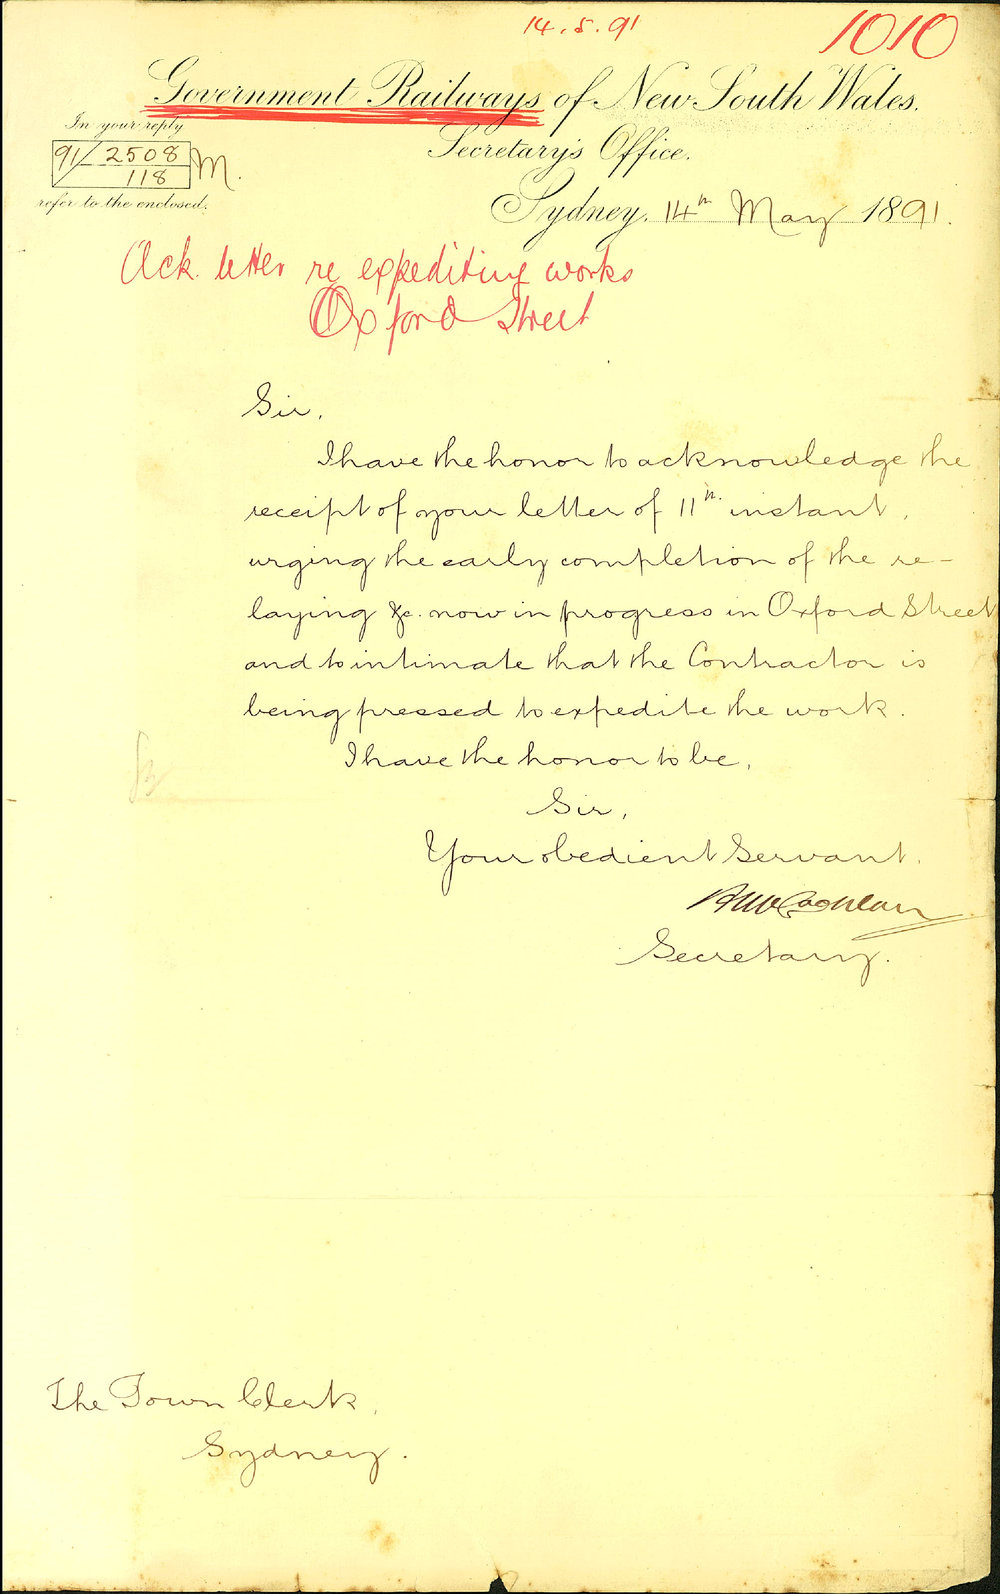 14.5.91
1010
Government Railways of New South Wales.
Secretary's Office.
In your reply
91/2508
118
M.
refer to the enclosed.
Sydney, 14th May 1891.
Ack. letter re expediting works
Oxford Street
Sir,
I have the honor to acknowledge the
receipt of your letter of 11th instant,
urging the early completion of the re-
laying &c. now in progress in Oxford Street
and to intimate that the Contractor is
being pressed to expedite the work.
I have the honor to be,
Sir,
Your obedient Servant.
Secretary.
The Town Clerk,
Sydney.